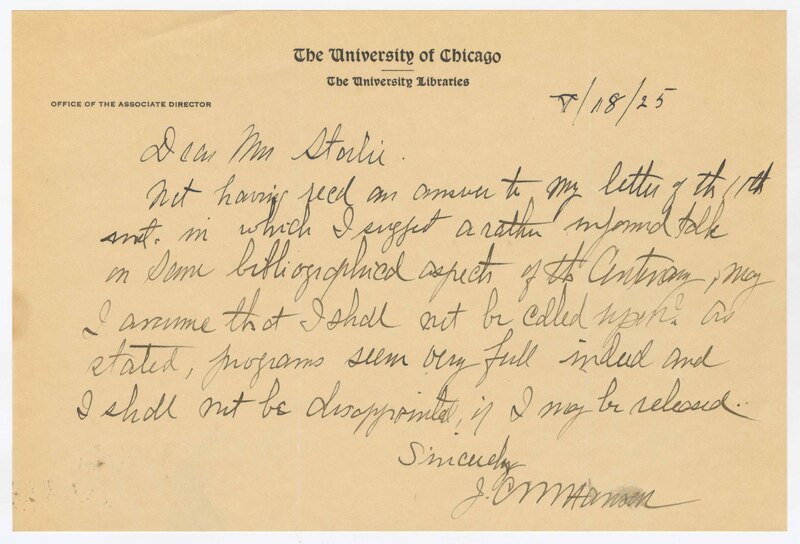 The University of Chicago
The University Libraries
OFFICE OF THE ASSOCIATE DIRECTOR
/18/25
Dear Mr Storlie.
Not having recd an answer to my letter of th 11th
inst. in which I suggest a rather informal talk
on some bibliographical aspects of the Centenary, may
I assume that I shall not be called upon? As
stated, programs seem very full indeed and
I shall not be disappointed, if I may be released.
Sincerely
J. C M Hanson